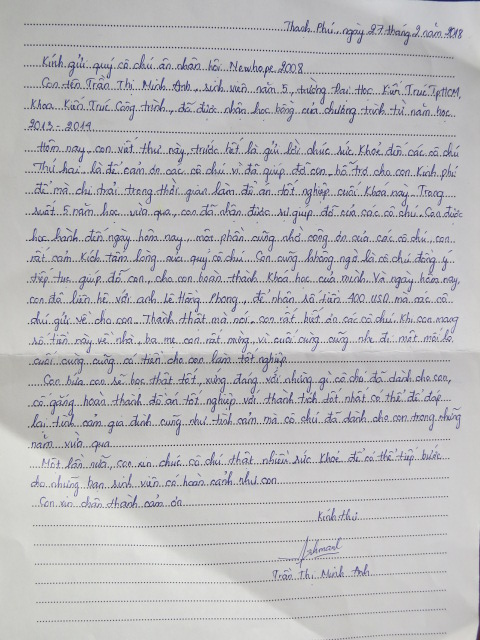 Thạnh Phú, ngày 27 tháng 2 năm 2018
Kính gửi quý cô chú ân nhân hội Newhope 2008.
Con tên Trần Thị Minh Anh, sinh viên năm 5, trường Đại Học Kiến Trúc Tp.HCM,
Khoa Kiến Trúc Công trình, đã được nhận học bổng của chương trình từ năm học
2013 - 2014.
Hôm nay, con viết thư này, trước hết là gửi lời chúc sức khoẻ đến các cô chú
Thứ hai là để cảm ơn các cô chú vì đã giúp đỡ con, hỗ trợ cho con kinh phí
để mà chi trải trong thời gian làm đồ án tốt nghiệp cuối khoá này. Trong
suốt 5 năm học vừa qua, con đã nhận được sự giúp đỡ của các cô chú. Con được
học hành đến ngày hôm nay, một phần cũng nhờ công ơn của các cô chú, con
rất cảm kích tấm lòng của quý cô chú. Con cũng không ngờ là cô chú đồng ý
tiếp tục giúp đỡ con, cho con hoàn thành khóa học của mình. Và ngày hôm nay,
con đã liên hệ với anh Lê Hồng Phong, để nhận số tiền 400 USD mà các cô
chú gửi về cho con. Thành thật mà nói, con rất biết ơn các cô chú. Khi con mang
số tiền này về nhà, ba mẹ con rất mừng, vì cuối cùng cũng nhẹ đi một mối lo,
cuối cùng cũng có tiền cho con làm tốt nghiệp.
Con hứa con sẽ học thật tốt, xứng đáng với những gì cô chú đã dành cho con,
cố gắng hoàn thành đồ án tốt nghiệp với thành tích tốt nhất có thể để đáp
lại tình cảm gia đình cũng như tình cảm mà cô chú đã dành cho con trong những
năm vừa qua.
Một lần nữa, con xin chúc cô chú thật nhiều sức khoẻ để có thể tiếp bước
cho những bạn sinh viên có hoàn cảnh như con.
Con xin chân thành cảm ơn.
Kính thư
Trần Thị Minh Anh